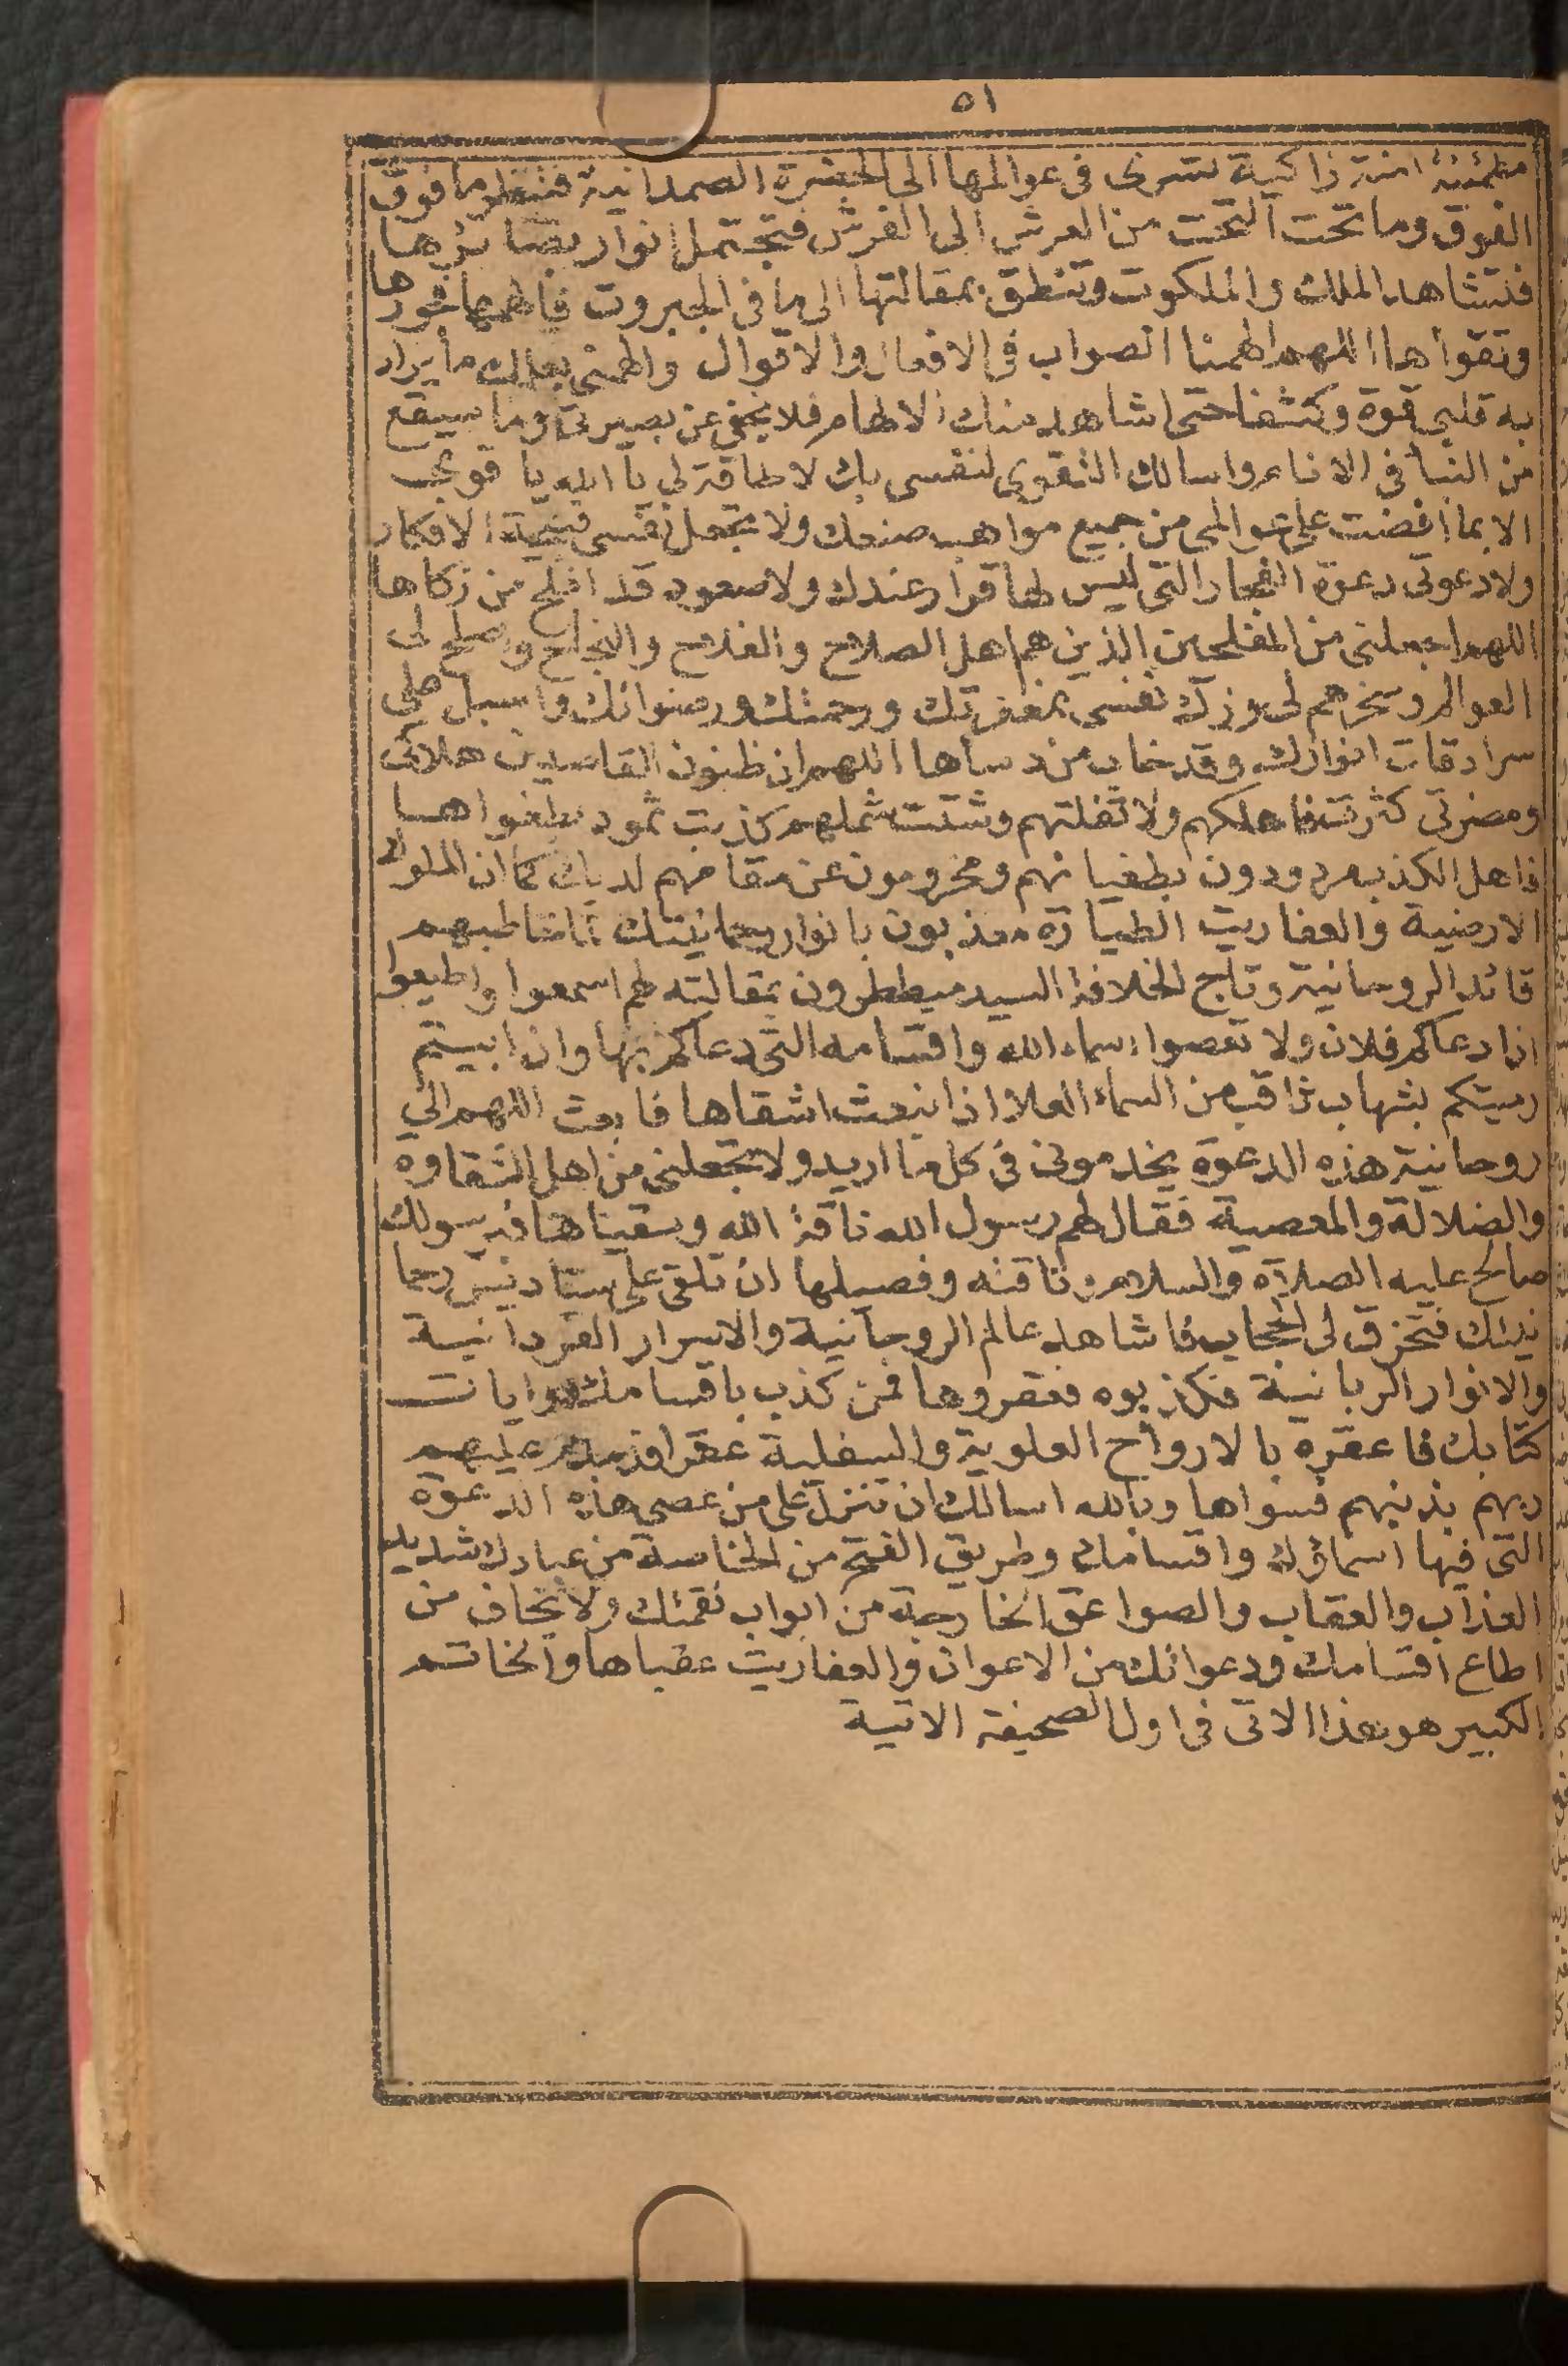 ٥١
مطمئنة امنة زاكية تسرى فى عوالمها الى الحضرة الصمدانية فتنظر ما فوق
الفوق وما تحت التحت من العرش الى الفرش فتجتمل انوار بصائرها
فتشاهد الملك والملكوت وتنطق بمقالتها الى ما فى الجبروت فالهمها فجورها
وتقواها اللهم الهمنا الصواب فى الافعال والاقوال والهمنى بعدلك ما يراد
به قلبى قوة وكشفا حتى اشاهد منك الالهام فلا يخفى عن بصيرتى وما سيقع
من النبأ فى الانام واسالك التقوى لنفسى بك لا طاقة لى يا الله يا قوى
الا بما افضت على عوالمى من جميع مواهب صنعك ولا تجعل نفسى الافكار
ولا دعوتى دعوة الفجار التى ليس لها قرار عندك ولا صعود قد افلح من زكاها
اللهم اجعلنى من المفلحين الذين هم اهل الصلاح والفلاح والانجاح وصلح لى
العوالم وسخرهم لى وزك نفسى بمغفرتك ورحمتك ورضوانك واسبل على
سرادقات انوارك وقد خاب من دساها اللهم ان ظنون القاصدين هلاكى
ومضرتى كثرت فاهلكهم ولا تفلتهم وشتت شملهم كذبت ثمود بطغواها
فاهل الكذب مردودون بطغيانهم ومحرومون عن مقامهم لديك كما ان الملوك
الارضية والعفاريت الطيارة معذبون بانوار رحمانيتك لما خاطبهم
قائد الروحانية وتاج الخلافة السيد ميططرون بمقالته لهم اسمعوا واطيعوا
اذا دعاكم فلان ولا تعصوا اسماء الله واقسامه التى دعاكم بها وان ابيتم
رميتكم بشهاب ثاقب من السماء العلا اذ انبعث اشقاها فابعث اللهم الى
روحانية هذه الدعوة يخدمونى فى كل ما اريد ولا تجعلنى من اهل الشقاوة
والضلالة والمعصية فقال لهم رسول الله ناقة الله وسقياها فبرسولك
صالح عليه الصلاة والسلام وناقته وفصيلها ان تلقى على
فتخرق لى الحجاب فاشاهد عالم الروحانية والاسرار الفردانية
والانوار الربانية فكذبوه فعقروها فمن كذب باقسامك وايات
كتابك فاعقره بالارواح العلوية والسفلية عقرا فدمدم عليهم
ربهم بذنبهم فسواها وبالله اسالك ان تنزل على من عصى هذه الدعوة
التى فيها اسماؤك واقسامك وطريق الفتح من الخاصة من عبادك شديد
العذاب والعقاب والصواعق الخارجة من ابواب نقمتك ولا تخاف من
اطاع اقسامك ودعواتك من الاعوان والعفاريت عقباها والخاتم
الكبير هو هذا الاتى فى اول الصحيفة الاتية